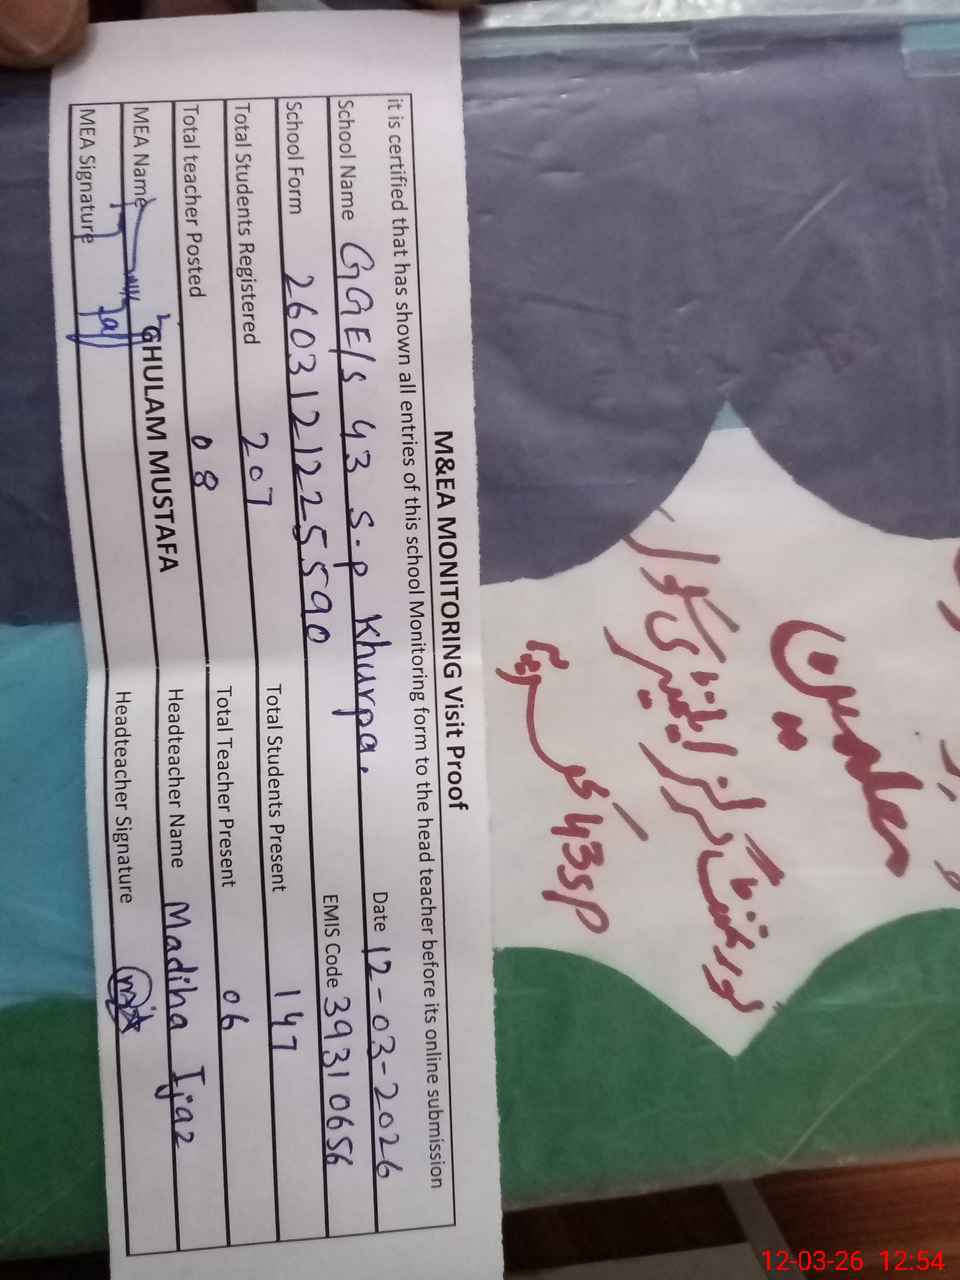 M&EA MONITORING Visit Proof
it is certified that has shown all entries of this school Monitoring form to the head teacher before its online submission
School Name GGE/S 43 S.P Khurpa. Date 12-03-2026
School Form 2603121225590 EMIS Code 39310656
Total Students Registered 207 Total Students Present 147
Total teacher Posted 08 Total Teacher Present 06
MEA Name GHULAM MUSTAFA Headteacher Name Madiha Ijaz
MEA Signature Headteacher Signature
معلمین
گورنمنٹ گرلز ایلیمنٹری سکول
43SP
12-03-26 12:54